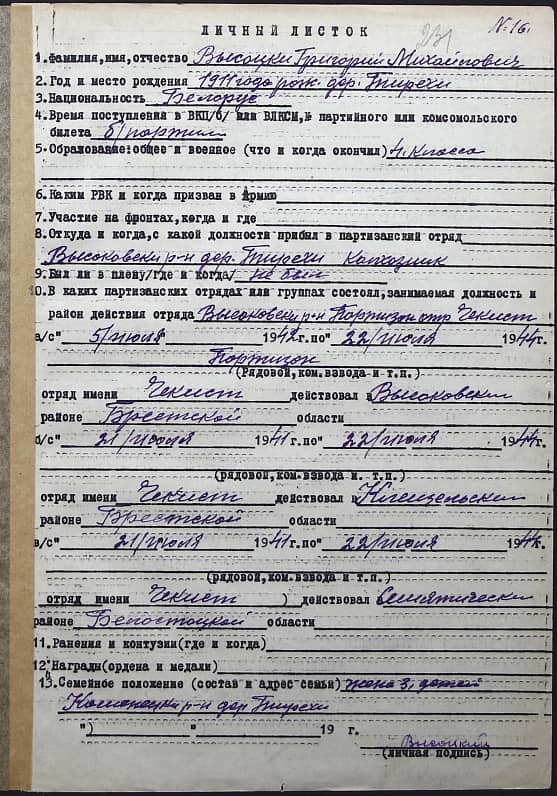 231
№16.
ЛИЧНЫЙ ЛИСТОК
1.Фамилия,имя,отчество Высоцки Григорий Михайлович
2.Год и место рождения 1911 года рож. дер. Тиревхи
3.Национальность Белорус
4.Время поступления в ВКП/б/ или ВЛКСМ,№ партийного или комсомольского
билета б/партии
5.Образование:общее и военное (что и когда окончил) 4. класса
6.Каким РВК и когда призван в Армию
7.Участие на фронтах,когда и где
8.Откуда и когда,с какой должности прибыл в партизанский отряд
Высоковски р-н дер. Колхозник
9.Был ли в плену/где и когда/ не был
10.В каких партизанских отрядах или группах состоял,занимаемая должность и
район действия отряда Высоковски р-н Портизон отр Чекист
а/с" 5/июля 1942 г.по" 22/июля 1944г.
Портизон
(Рядовой,ком.взвода и т.п.)
отряд имени Чекист действовал в Высоковски
районе Брестской области
б/с" 21/июля 1941 г.по" 22/июля 1944г.
(рядовой,ком.взвода и. т.п.)
отряд имени Чекист действовал в Клещельски
районе Брестской области
в/с" 21/июля 1941 г.по" 22/июля 1944г.
(рядовой,ком.взвода и т.п.)
отряд имени Чекист ) действовал Семятически
районе Белостоцкой области
11.Ранения и контузии(где и когда)
12.Награды(ордена и медали)
13.Семейное положение (состав и адрес семьи) жена 3. детей
р-н дер
") " 19 г.
Высоцкий
(личная подпись)